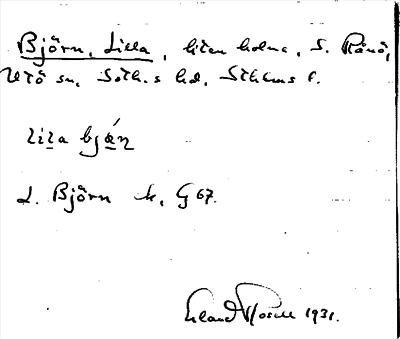 Björn, Lilla, liten holme, S. Rånö,
Utö sn, Soth.s hd, Sthlms l.
lila bjǽn
L. Björn k, G 67.
Erland Rosell 1931.